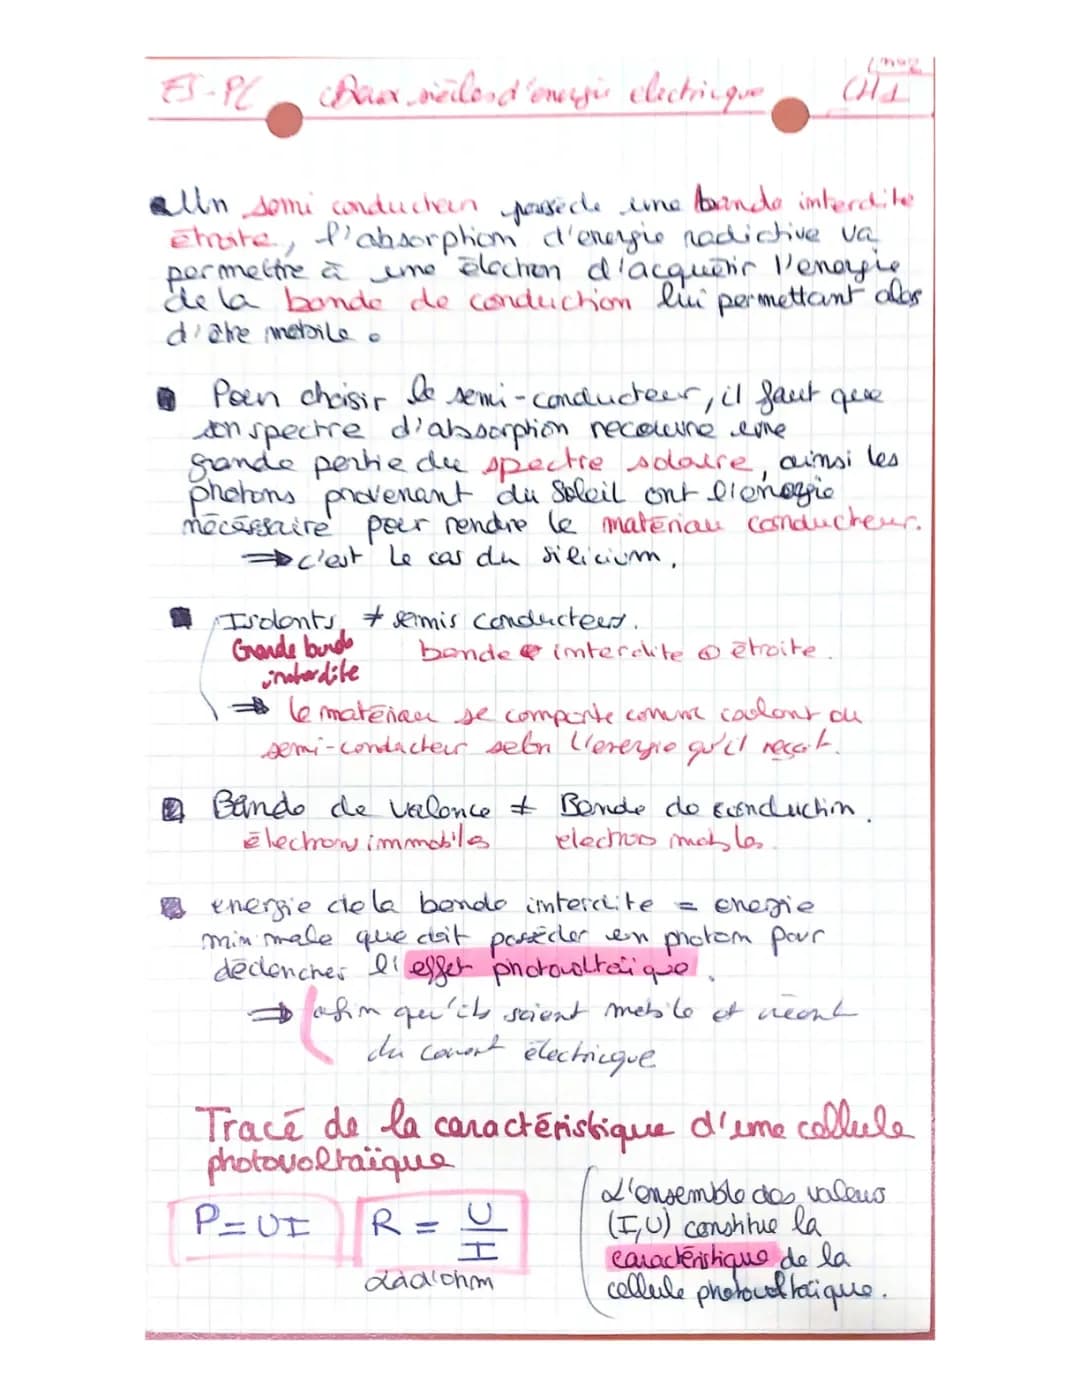 ES-PC Deux siècles d'énergie électrique CH1
Un semi conducteur possède une bande interdite
étroite, l'absorption d'energie radictive va
permettre à une électron d'acquérir l'énergie
de la bande de conduction lui permettant alors
d'être mobile.
Pour choisir le semi-conducteur, il faut que
son spectre d'absorption recouvre une
grande partie du spectre solaire, ainsi les
photons provenant du Soleil ont l'énergie
nécéssaire pour rendre le matériau conducteur.
⇒ c'est le cas du silicium.
Isolants ≠ semis conducteurs.
Grande bande bande interdite étroite.
interdite
⇒ le matériau se comporte comme isolant ou
semi-conducteur selon l'énergie qu'il reçoit.
Bande de valence ≠ Bande de conduction.
électrons immobiles electrons mobiles.
energie de la bande interdite = energie
minimale que doit posséder un photon pour
déclencher l'effet photovoltaïque.
⇒ afin qu'ils soient mobile et créent
du courant électrique
Tracé de la caractéristique d'une cellule
photovoltaïque
P=UI R = U/I
Lad'ohm
L'ensemble des valeurs
(I,U) constitue la
caractéristique de la
cellule photovoltaïque.